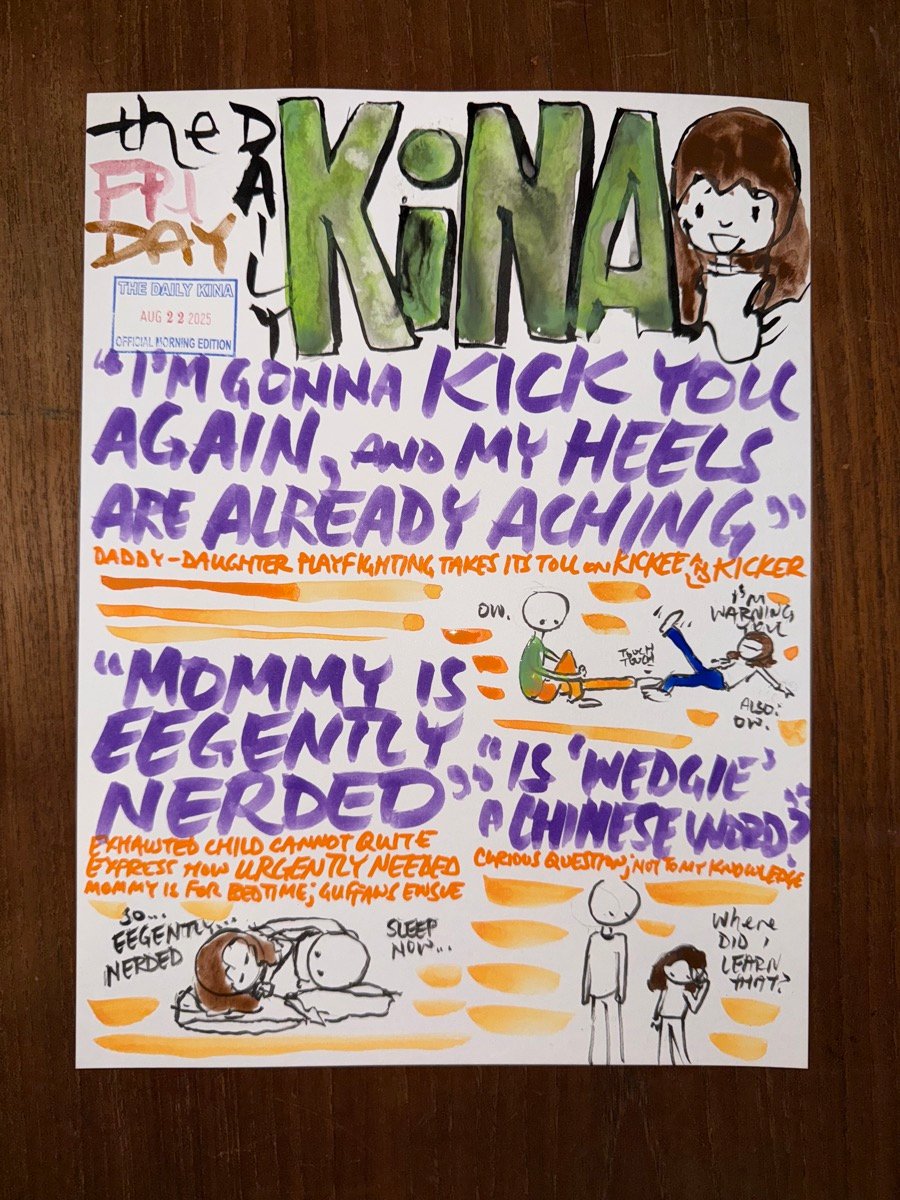 the DAILY KiNA
FRI
DAY
THE DAILY KINA
AUG 22 2025
OFFICIAL MORNING EDITION
"I'M GONNA KICK YOU
AGAIN, AND MY HEELS
ARE ALREADY ACHING"
DADDY-DAUGHTER PLAYFIGHTING TAKES ITS TOLL ON KICKEE AND KICKER
OW.
I'M
WARNING
YOU
TOUCH
TOUCH
ALSO:
OW.
"MOMMY IS
EEGENTLY
NERDED"
EXHAUSTED CHILD CANNOT QUITE
EXPRESS HOW URGENTLY NEEDED
MOMMY IS FOR BEDTIME; GUFFAWS ENSUE
SO...
EEGENTLY...
NERDED
SLEEP
NOW...
"IS 'WEDGIE'
A CHINESE WORD?"
CURIOUS QUESTION; NOT TO MY KNOWLEDGE
WHERE
DID I
LEARN
THAT?